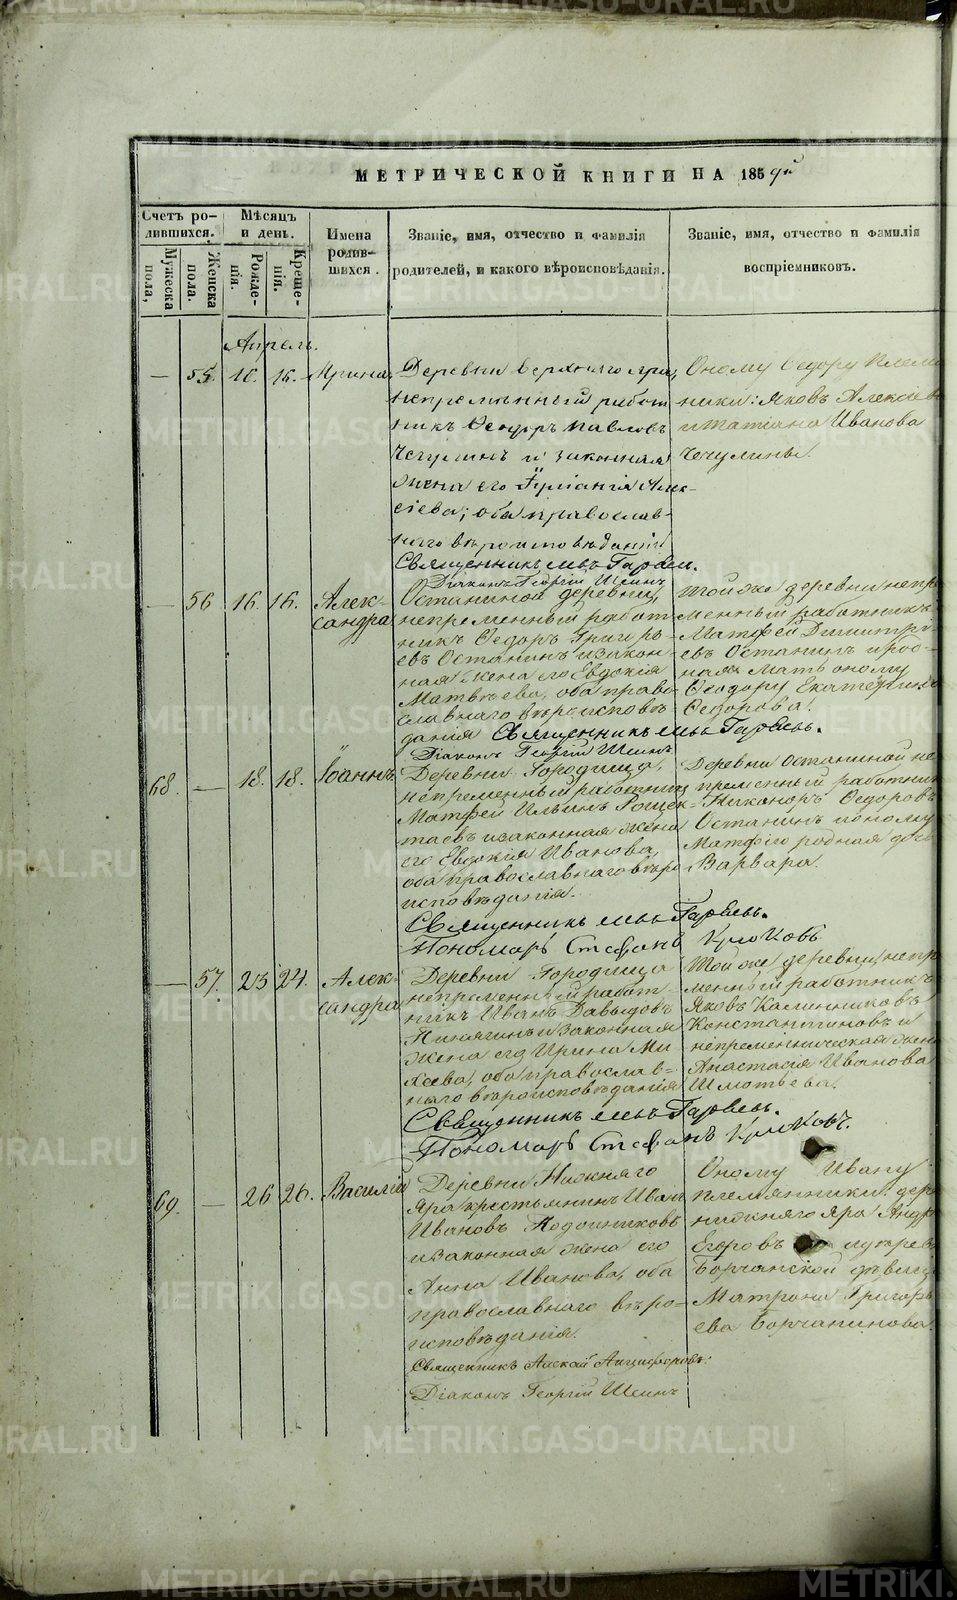 МЕТРИЧЕСКОЙ КНИГИ НА 1859й
Счетъ ро-
дившихся.
Мужеска пола,
Женска пола.
Мѣсяцъ
и день.
Рожде-
нія.
Креще-
нія.
Имена
родив-
шихся.
Званіе, имя, отчество и фамилія
родителей, и какого вѣроисповѣданія.
Званіе, имя, отчество и фамилія
воспріемниковъ.
Апрель.
— 55. 16. 16. Ирина,
Деревни Верхняго яра,
непремѣнный работ
никъ Ѳеодоръ Павловъ
Чечулинъ и законная
жена его Алек-
сіева; оба православ-
наго вѣроисповѣданія
Священникъ Левъ Гаряевъ.
Діаконъ Георгій Шеинъ
Оному Ѳедору племя
ники: Яковъ Алексіевъ
и Татіана Иванова
Чечулины.
— 56 16. 16. Алек-
сандра
Останиной деревни,
непременный работ
никъ Ѳедоръ Григорь
евъ Останинъ и закон-
ная жена его Евдокія
Матвѣева, оба право
славнаго вѣроисповѣ
данія Священникъ Левъ Гаряевъ.
Діаконъ Георгій Шеинъ
Той же деревни непре
менный работникъ
Матфей Димитрі-
евъ Останинъ и род-
ная мать оному
Ѳеодору Екатерина
Ѳедорова.
68. — 18. 18. Іоаннъ
Деревни Городища,
непременный работникъ
Матфей Ильинъ
и законная жена
его Евдокія Иванова,
оба православнаго вѣро
исповѣданія.
Священникъ Левъ Гаряевъ.
Пономарь Стефанъ Крюковъ
Деревни Останиной не
пременный работник
Никаноръ Ѳедоровъ
Останинъ и оному
Матфею родная дочь
Варвара.
— 57. 23 24. Алек-
сандра
Деревни Городища
непременный работ-
никъ Иванъ Давыдовъ
и законная
жена его Ирина Ми
хеева, оба православ-
наго вѣроисповѣданія
Священникъ Левъ Гаряевъ.
Пономарь Стефанъ Крюковъ.
Той же деревни, непре
менный работникъ
Яковъ Калинниковъ
Константиновъ и
непременническая жена
Анастасія Иванова
69. — 26 26. Василій
Деревни Нижняго
Яра крестьянинъ Иванъ
Ивановъ Подойниковъ
и законная жена его
Анна Иванова, оба
православнаго вѣро-
исповѣданія.
Священникъ Алексій Анциферовъ:
Діаконъ Георгій Шеинъ
Оному Ивану
племянники: дер
нижняго Яра Андр
Егоровъ
Борчанской дѣвица
Матрона Григорь
ева Борчанинова.
METRIKI.GASO-URAL.RU